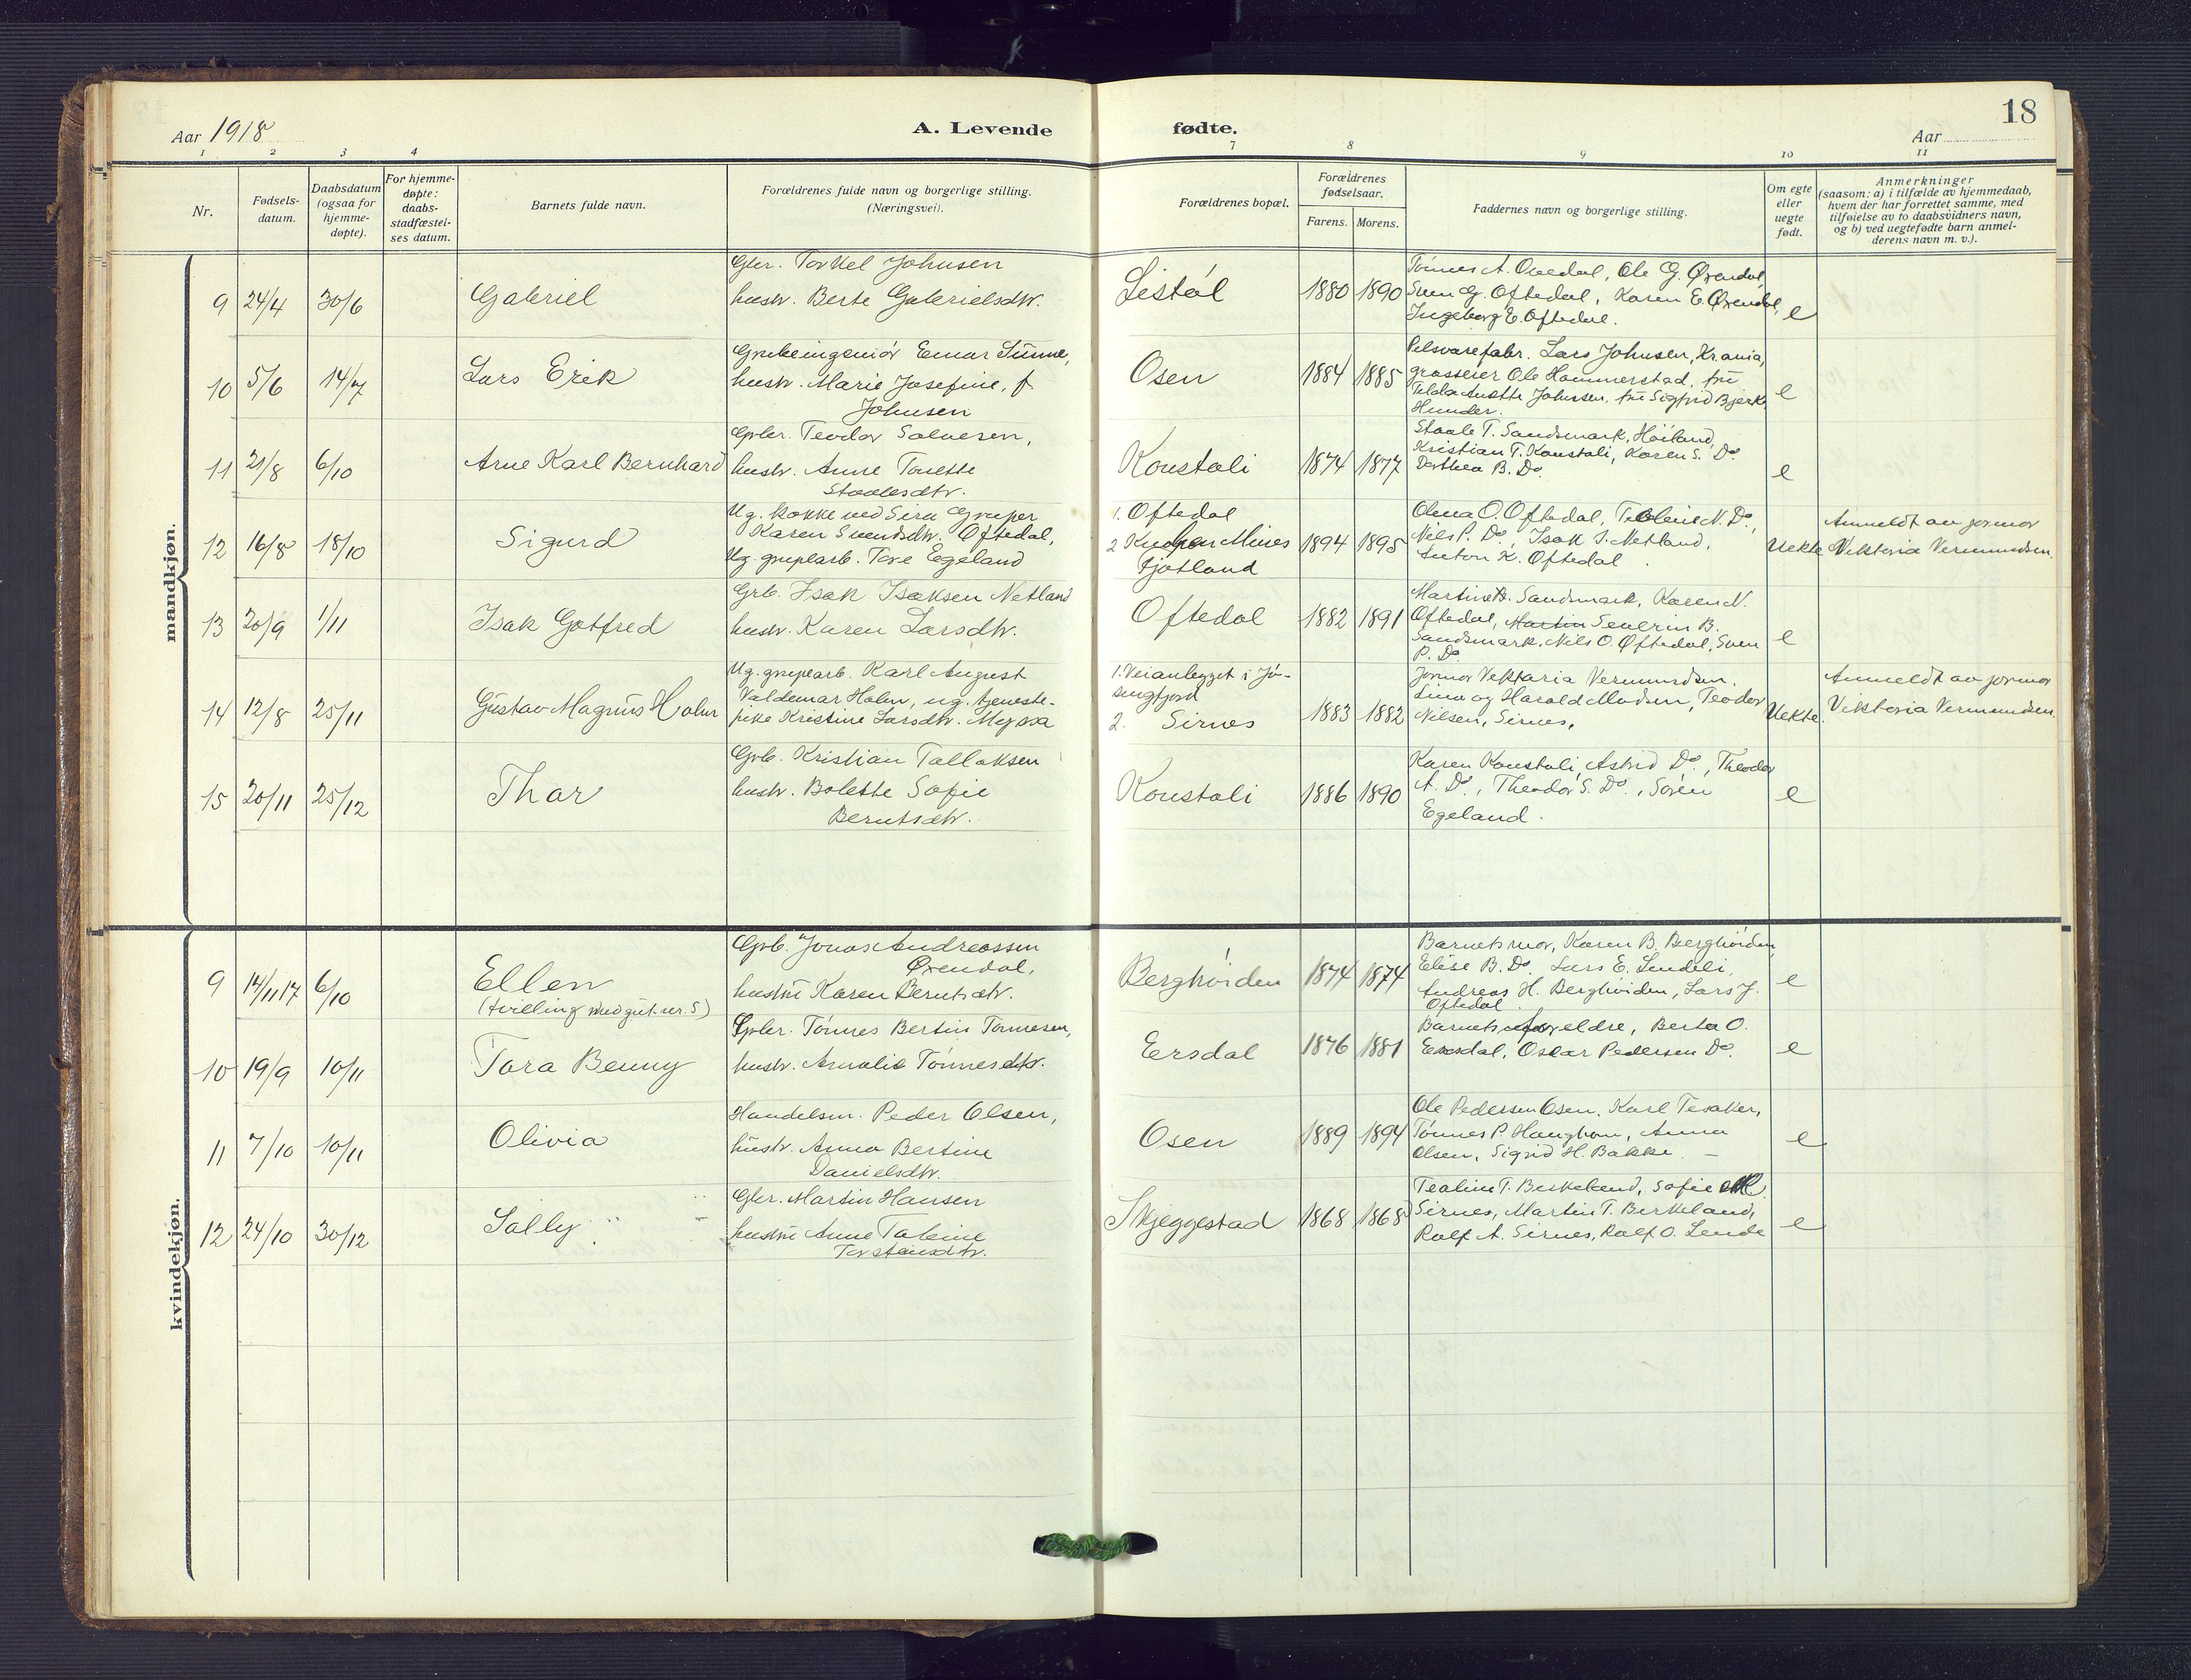 18
Aar 1918
A. Levende fødte.
Aar
1 2 3 4 7 8 9 10 11
Nr.
Fødsels-
datum.
Daabsdatum
(ogsaa for
hjemme-
døpte).
For hjemme-
døpte:
daabs-
stadfæstel-
ses datum.
Barnets fulde navn.
Forældrenes fulde navn og borgerlige stilling.
(Næringsvei).
Forældrenes bopæl.
Forældrenes
fødselsaar.
Farens. Morens.
Faddernes navn og borgerlige stilling.
Om egte
eller
uegte
født.
Anmerkninger
(saasom: a) i tilfælde av hjemmedaab,
hvem der har forrettet samme, med
tilføielse av to daabsvidners navn,
og b) ved uegtefødte barn anmel-
derens navn m. v.).
mandkjøn.
9 24/4 30/6
Gabriel
Gbr. Torkel Johnsen
hustr. Berte Gabrielsdtr.
Listøl
1880 1890
Tønnes A. Ovedal, Ole G. Øxendal,
Sven G. Oftedal, Karen E. Øxendal,
Ingeborg E. Oftedal.
e
10 5/6 14/7
Lars Erik
Grubeingeniør Einar Sunne,
hustr. Marie Josefine, f.
Johnsen
Osen
1884 1885
Pelsvarefabr. Lars Johnsen, Kr.ania,
grosserer Ole Hammerstad, fru
Tilda Anette Johnsen, fru Sigfrid Bjerke
Hunder.
e
11 21/8 6/10
Arne Karl Bernhard
Gbr. Teodor Salvesen,
hustr. Anne Tonette
Staalesdtr.
Konstali
1874 1877
Staale T. Sandsmark, Høiland,
Kristian T. Konstali, Karen S. Do
Dorthea B. Do.
e
12 16/8 18/10
Sigurd
Ug. kokke ved Sira Gruper
Karen Svendsdtr. Oftedal,
Ug. grupearb. Tore Egeland
1. Oftedal
2 Knaben Mines
Fjotland
1894 1895
Olena O. Oftedal, Teoline N. Do.,
Nils P. Do, Isak I. Netland,
Anton K. Oftedal
Uekte
Anmeldt av jormor
Viktoria Vermundsen.
13 20/9 1/11
Isak Gotfred
Grb. Isak Isaksen Netland
hustr. Karen Larsdtr.
Oftedal
1882 1891
Martine B. Sandsmark, Karen N.
Oftedal, Martin Severin B.
Sandsmark, Nils O. Oftedal, Sven
P. Do.
e
14 12/8 25/11
Gustav Magnus Holm
Ug. grupearb. Karl August
Valdemar Holm, ug. tjeneste-
pike Kristine Larsdtr.
1. Veianlegget i Jø-
singfjord
2. Sirnes
1883 1882
Jormor Vektaria Vermundsen.
Lina og Harald Madsen, Teodor
Nilsen, Sirnes,
Uekte.
Anmeldt av jormor
Viktoria Vermundsen.
15 20/11 25/12
Thor
Grb. Kristian Tallaksen
hustr. Bolette Sofie
Berntsdtr.
Konstali
1886 1890
Karen Konstali, Astrid Do., Theodor
A. Do., Theodor S. Do., Søren
Egeland.
e
kvindekjøn.
9 14/11 17 6/10
Ellen
(tvilling med gut. nr. 5)
Grb. Jonas Andreassen
Øxendal,
hustru Karen Berntsdtr.
Berghøiden
1874 1874
Barnets mor, Karen B. Berghøiden,
Elise B. Do. Lars E. Lindeli,
Andreas H. Berghøiden, Lars J.
Oftedal
e
10 19/9 10/11
Tora Benny
Gbr. Tønnes Bertin Tønnesen,
hustr. Amalie Tønnesdtr.
Eersdal
1876 1881
Barnets foreldre, Berta O.
Eersdal, Oskar Pedersen Do.
e
11 7/10 10/11
Olivia
Handelsm. Peder Olsen,
hustr. Anna Bertine
Danielsdtr.
Osen
1889 1894
Ole Pedersen Osen, Karl Tesaker,
Tønnes P. Haughom, Anna
Olsen, Sigrid H. Bakke.
e
12 24/10 30/12
Sally
Gbr. Martin Hansen
hustru Anne Taline
Torstensdtr.
Skjeggestad
1868 1868
Teoline T. Birkeland, Sofie
Sirnes, Martin T. Birkeland,
Rolf A. Sirnes, Rolf O. Lende
e